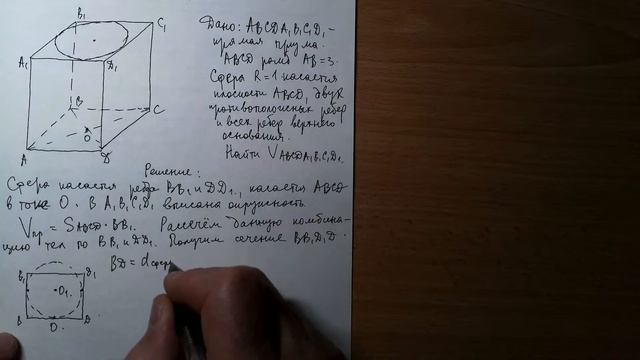 Дано: ABCDA₁B₁C₁D₁ –
прямая призма.
ABCD ромб AB=3.
Сфера R=1 касается
плоскости ABCD, двух
противоположных ребер
и всех ребер верхнего
основания.
Найти V ABCDA₁B₁C₁D₁.
B₁
C₁
A₁
D₁
B
C
O
A
D
Решение:
Сфера касается ребер BB₁ и DD₁, касается ABCD
в точке O. В A₁B₁C₁D₁ вписана окружность.
Vпр = S ABCD · BB₁. Рассечём данную комбина-
цию тел по BB₁ и DD₁. Получим сечение BB₁D₁D.
BD = d сфер
B₁
D₁
O₁
B
O
D